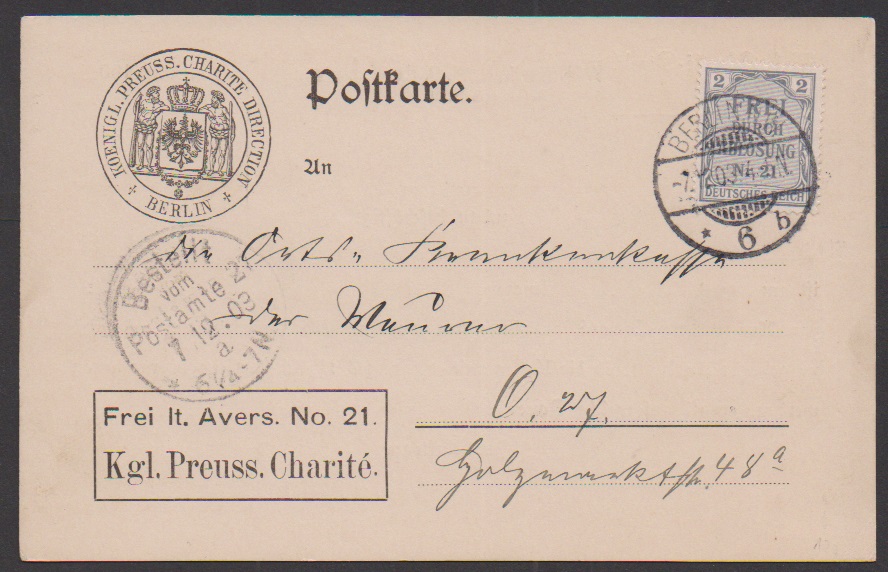 KOENIGL. PREUSS. CHARITE DIRECTION
+ BERLIN +
Postkarte.
An
2 2
FREI
DURCH
ABLÖSUNG
Nr. 21
DEUTSCHES REICH
BERLIN
* 6 b
die Orts-Krankenkasse
der Maurer
O. 27.
Holzmarktstr. 48a
Bestellt
vom
Postamte
7 12. 03
6¼-7N
Frei lt. Avers. No. 21.
Kgl. Preuss. Charité.